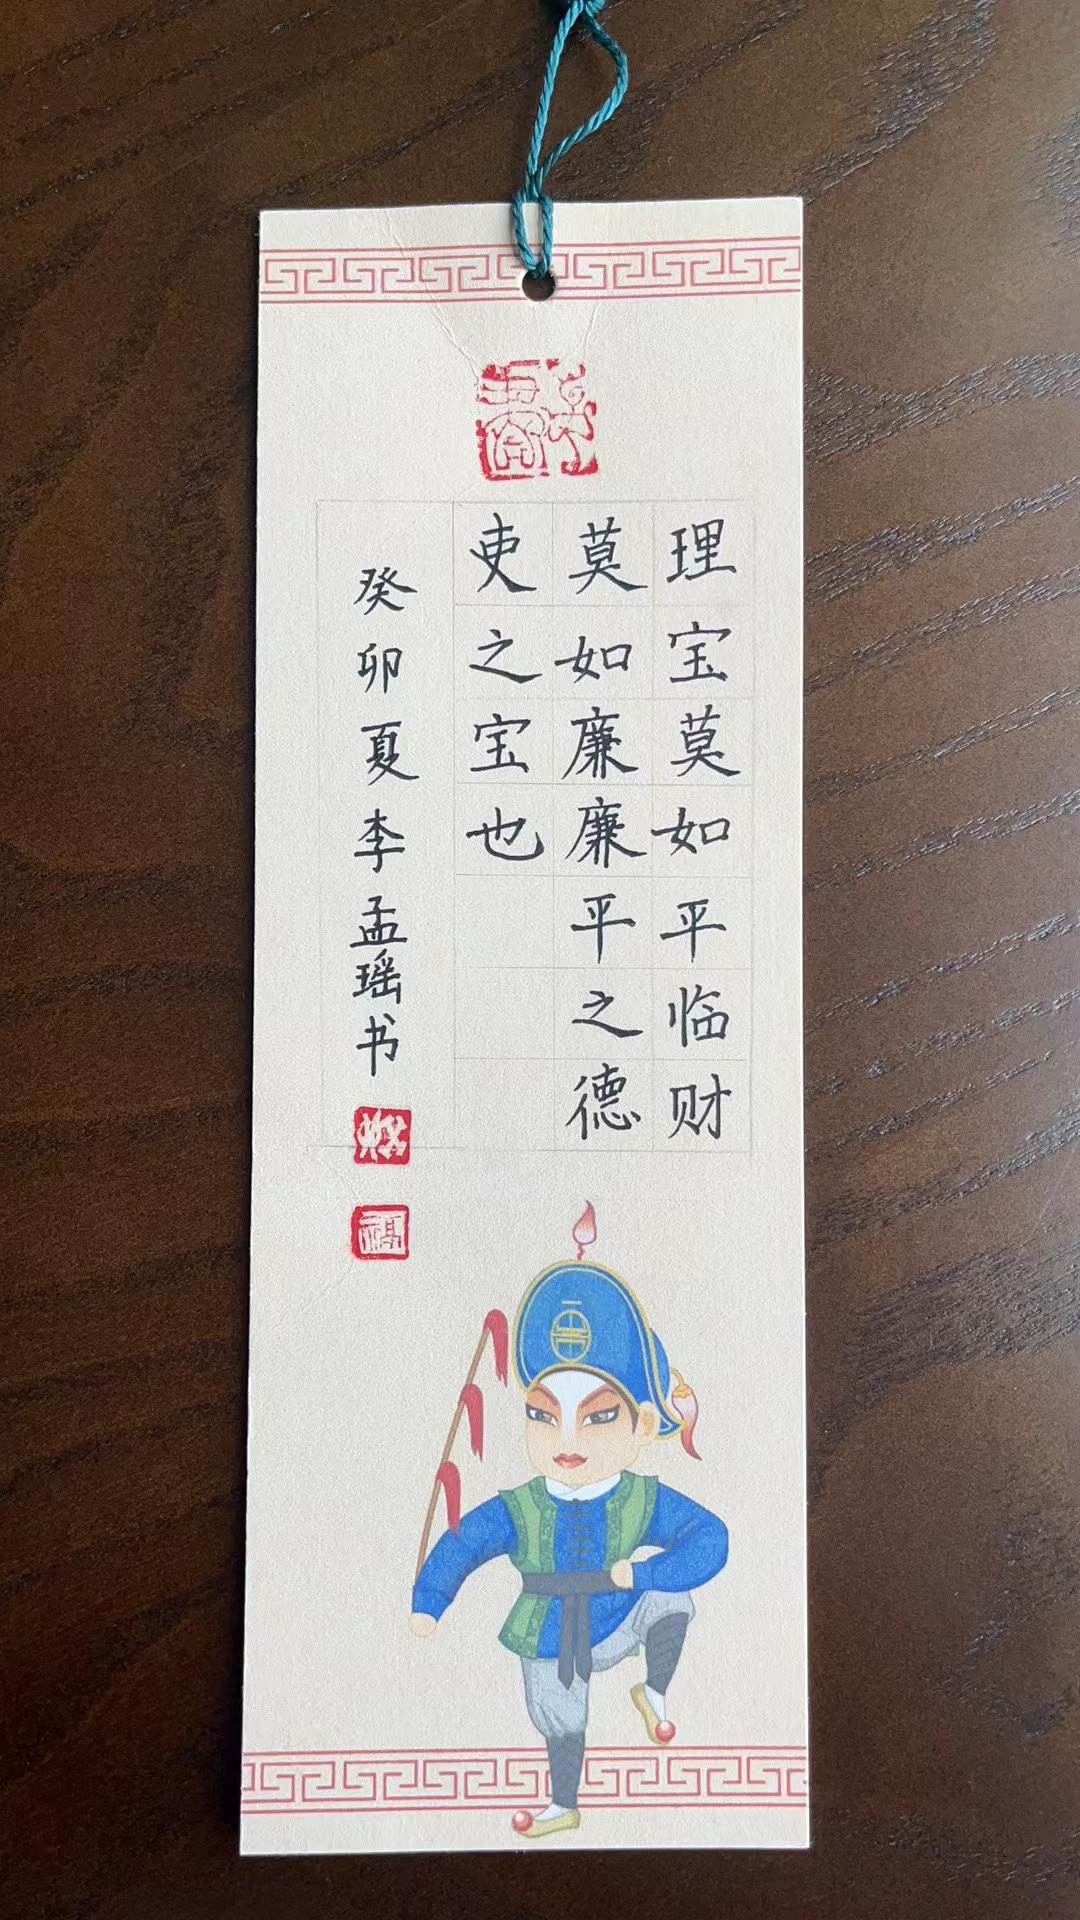 理宝莫如平临财
莫如廉廉平之德
吏之宝也
癸卯夏李孟瑶书